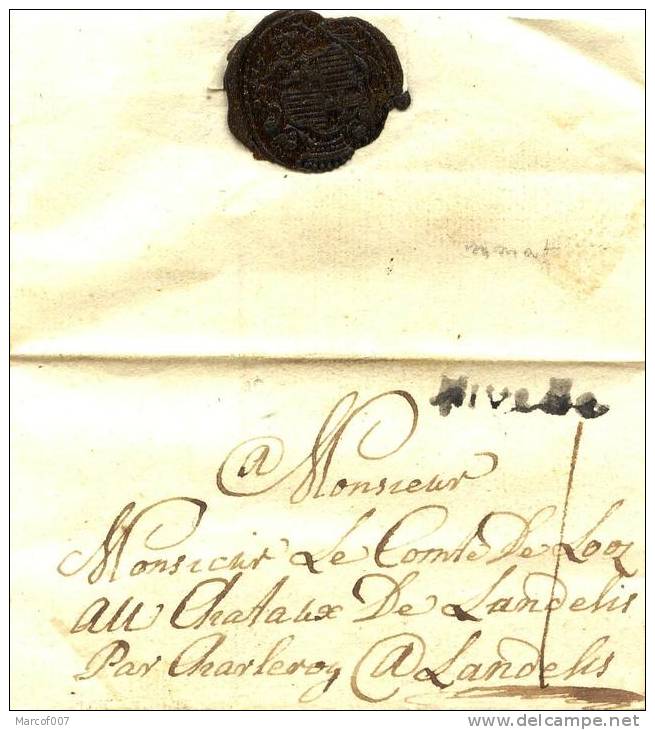 Nivelle
@ Monsieur
Monsieur Le Comte De Looz
au Chataux De Landelis
Par Charleroy @ Landelis
Marcof007
www.delcampe.net